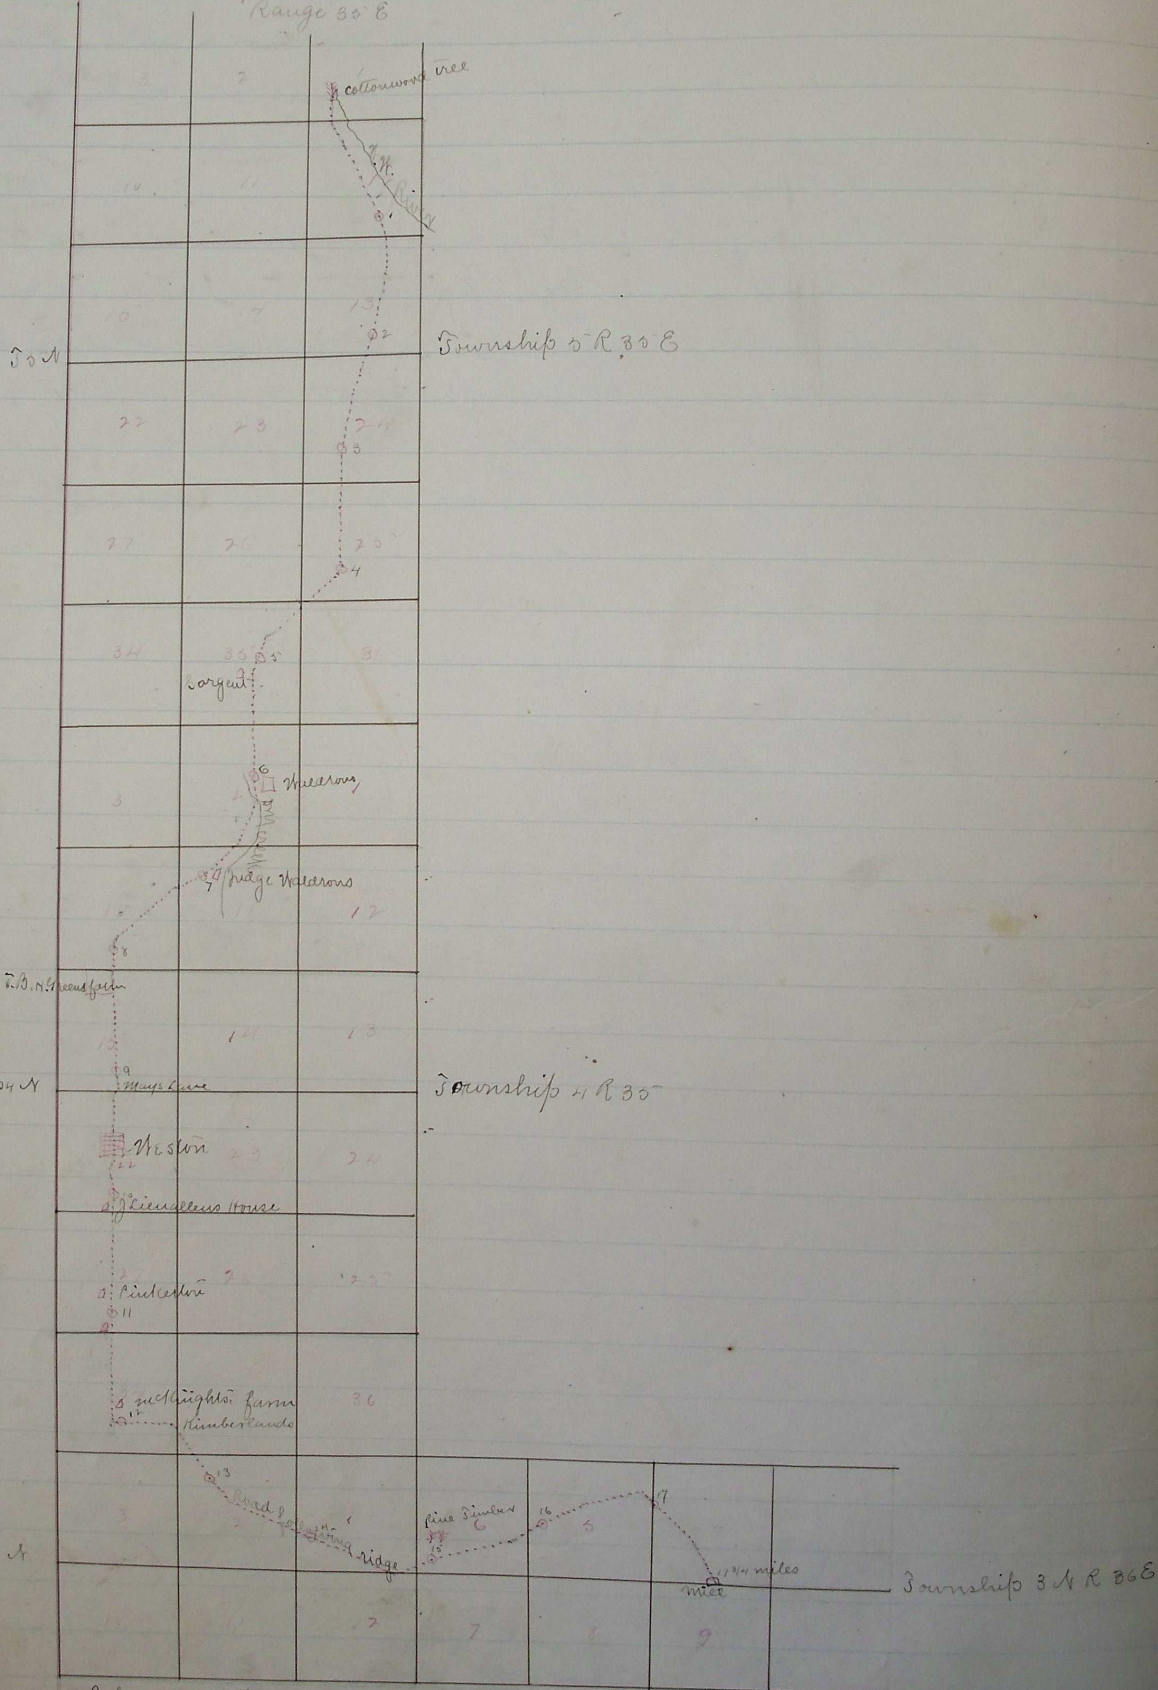 Range 35 E
3 2
Cottonwood Tree
10 11
W. W. River
1
13
2
T 5 N
Township 5 R 35 E
22 23 24
3
27 26 25
4
34 35
5
Sargent
6
Waldrons
3
Dry Creek
7
Judge Waldrons
12
8
farm
15 14 13
9
Mays Lane
4 N
Township 4 R 35
Weston
22 23 24
10
J Lieuallens House
26 25
Pinkerton
11
McKnights farm
36
12
Kimberlands
13
Road following ridge
3 2 1
14
Pine Timber
6 5
15
16
17
N
11 3/4 miles
Mill
Township 3 N R 36 E
11 12 7 8 9